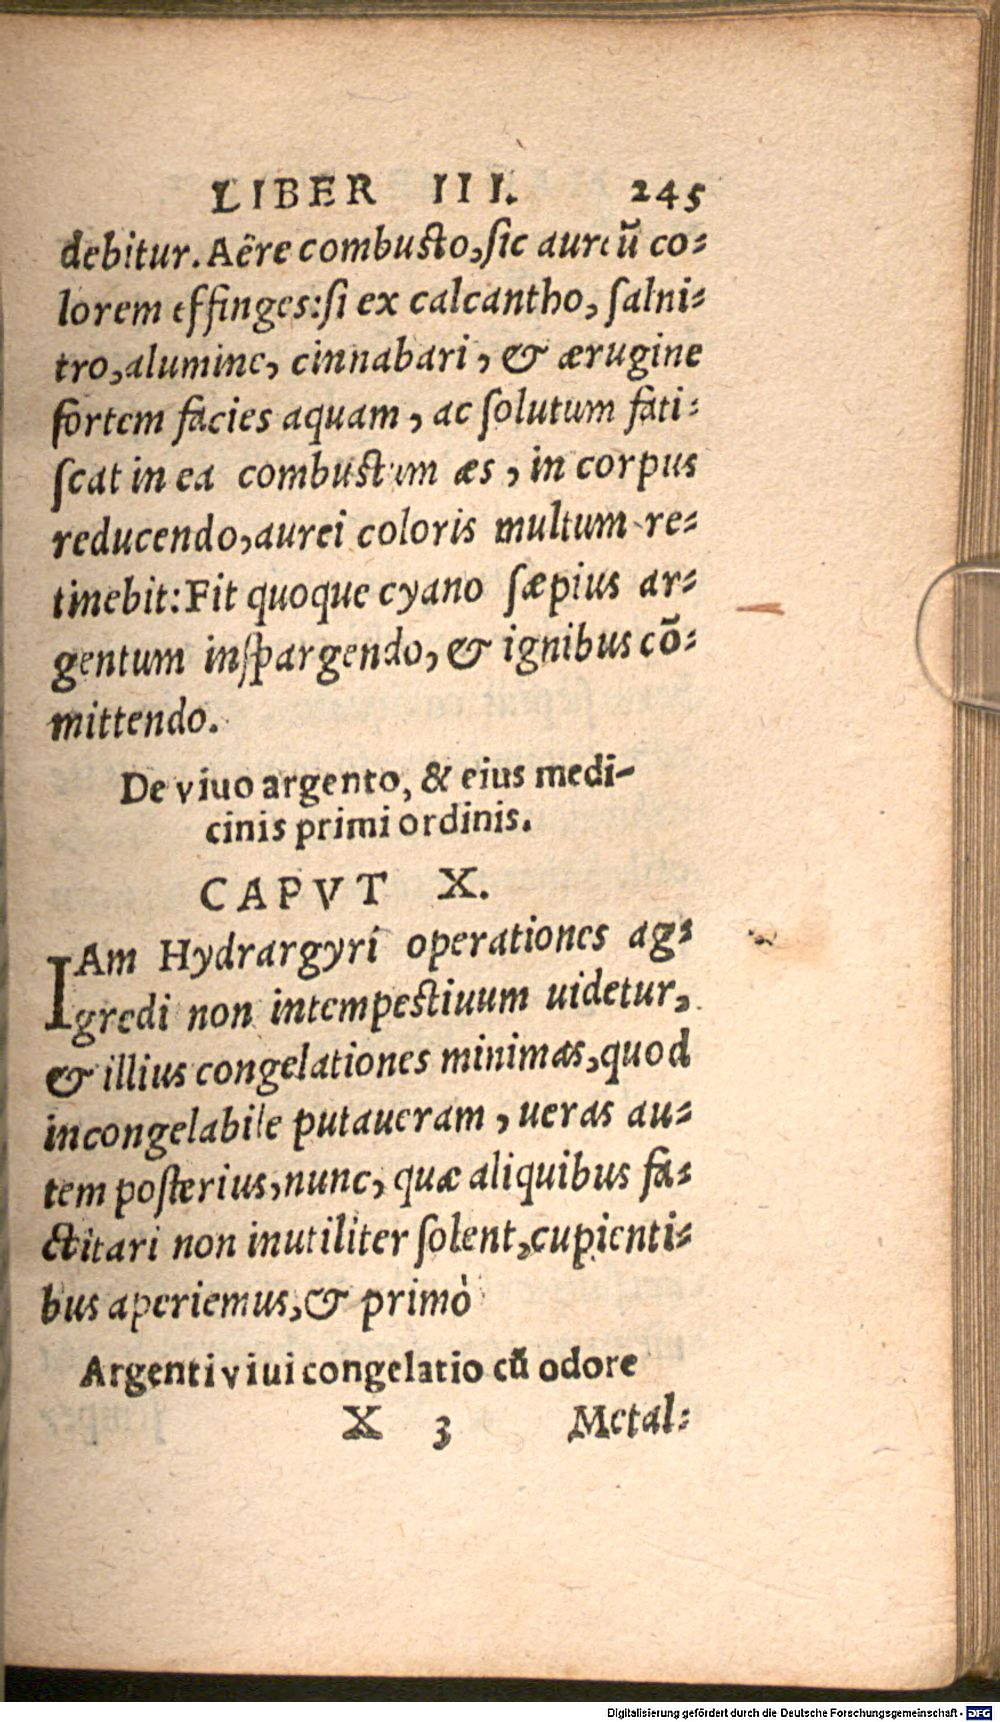 LIBER III. 245
debitur. Aëre combusto, sic aureũ co-
lorem effinges: si ex calcantho, salni-
tro, alumine, cinnabari, & ærugine
fortem facies aquam, ac solutum fati-
scat in ea combustum æs, in corpus
reducendo, aurei coloris multum re-
tinebit: Fit quoque cyano sæpius ar-
gentum inspargendo, & ignibus cõ-
mittendo.
De viuo argento, & eius medi-
cinis primi ordinis.
CAPVT X.
IAm Hydrargyri operationes ag-
gredi non intempestiuum uidetur,
& illius congelationes minimas, quod
incongelabile putaueram, ueras au-
tem posterius, nunc, quæ aliquibus fa-
ctitari non inutiliter solent, cupienti-
bus aperiemus, & primò
Argenti viui congelatio cũ odore
X 3 Metal-
Digitalisierung gefördert durch die Deutsche Forschungsgemeinschaft - DFG